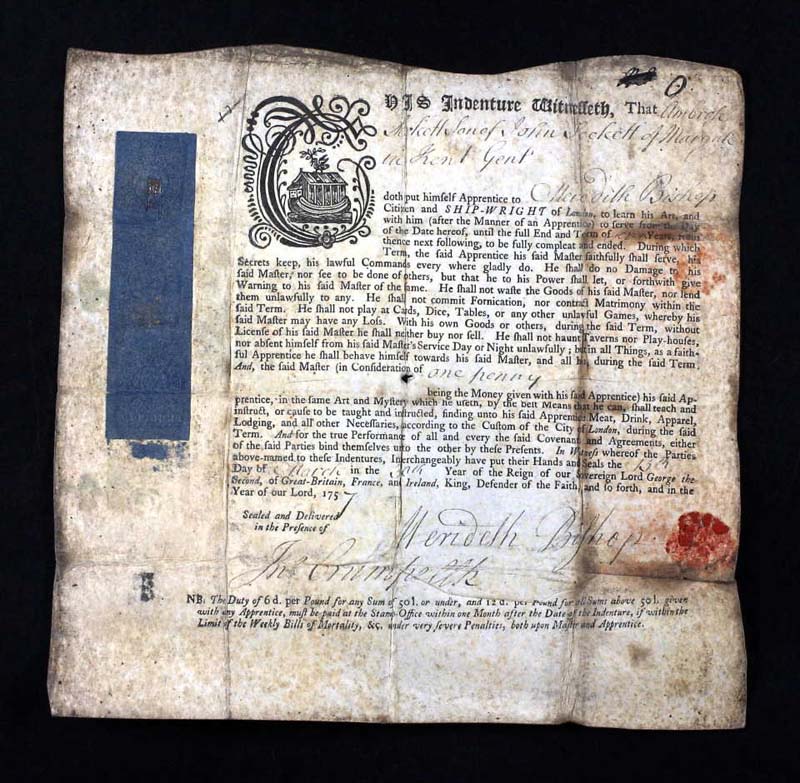 THIS Indenture Witnesseth, That Ambrose
Son of John of
in Kent Gent
doth put himself Apprentice to Merideth Bishop
Citizen and SHIP-WRIGHT of London, to learn his Art, and
with him (after the Manner of an Apprentice) to serve from the Day
of the Date hereof, until the full End and Term of Years, from
thence next following, to be fully compleat and ended. During which
Term, the said Apprentice his said Master faithfully shall serve, his
Secrets keep, his lawful Commands every where gladly do. He shall do no Damage to his
said Master, nor see to be done of others, but that he to his Power shall let, or forthwith give
Warning to his said Master of the same. He shall not waste the Goods of his said Master, nor lend
them unlawfully to any. He shall not commit Fornication, nor contract Matrimony within the
said Term. He shall not play at Cards, Dice, Tables, or any other unlawful Games, whereby his
said Master may have any Loss. With his own Goods or others, during the said Term, without
License of his said Master he shall neither buy nor sell. He shall not haunt Taverns nor Play-houses,
nor absent himself from his said Master's Service Day or Night unlawfully; but in all Things, as a faith-
ful Apprentice he shall behave himself towards his said Master, and all his, during the said Term.
And, the said Master (in Consideration of one penny
being the Money given with his said Apprentice) his said Ap-
prentice, in the same Art and Mystery which he useth, by the best Means that he can, shall teach and
instruct, or cause to be taught and instructed, finding unto his said Apprentice Meat, Drink, Apparel,
Lodging, and all other Necessaries, according to the Custom of the City of London, during the said
Term. And for the true Performance of all and every the said Covenants and Agreements, either
of the said Parties bind themselves unto the other by these Presents. In Witness whereof the Parties
above-named to these Indentures, Interchangeably have put their Hands and Seals the 15th
Day of March in the Year of the Reign of our Sovereign Lord George the
Second, of Great-Britain, France, and Ireland, King, Defender of the Faith, and so forth, and in the
Year of our Lord, 1757
Sealed and Delivered
in the Presence of
Merideth Bishop
Jno
NB. The Duty of 6 d. per Pound for any Sum of 50 l. or under, and 12 d. per Pound for all Sums above 50 l. given
with any Apprentice, must be paid at the Stamp-Office within one Month after the Date of the Indenture, if within the
Limit of the Weekly Bills of Mortality, &c. under very severe Penalties, both upon Master and Apprentice.